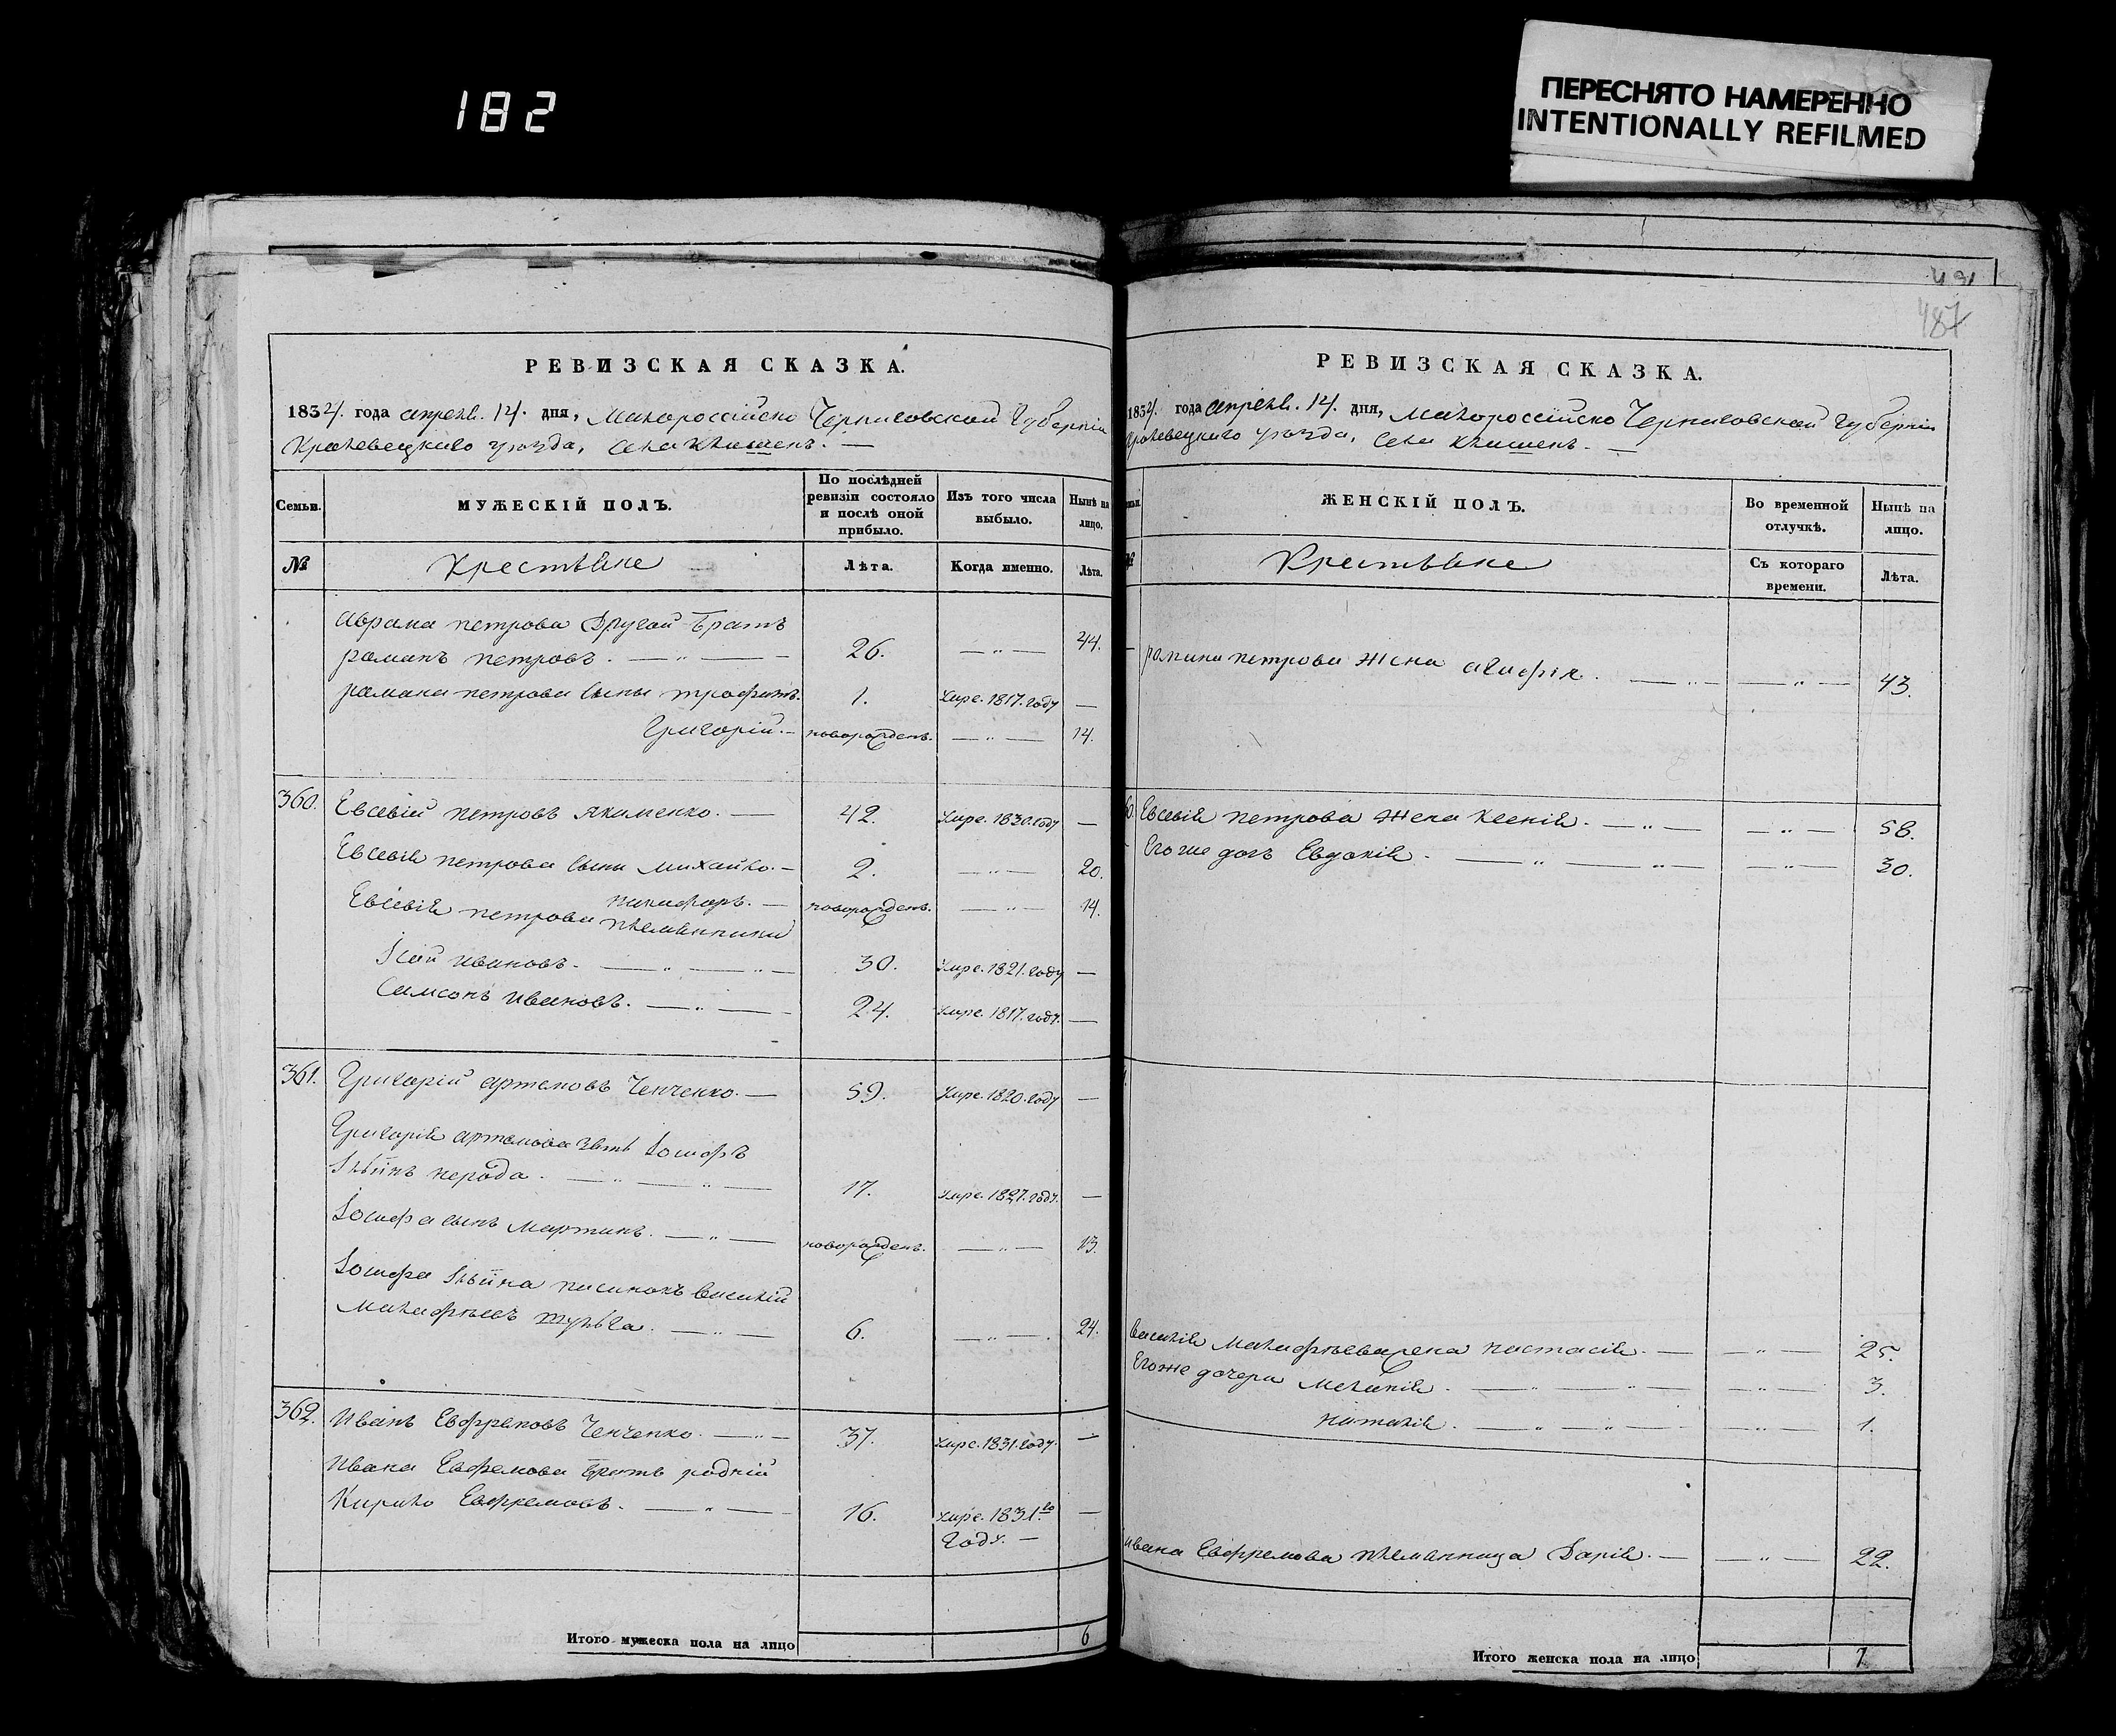 182
ПЕРЕСНЯТО НАМЕРЕННО
INTENTIONALLY REFILMED
487
РЕВИЗСКАЯ СКАЗКА.
1834. года апреля. 14. дня, Малороссійско Черниговской Губерніи
Кролевецкаго уезда, Села Клишекъ.
Семьи.
МУЖЕСКІЙ ПОЛЪ.
По послѣдней ревизіи состояло и послѣ оной прибыло.
Изъ того числа выбыло.
Нынѣ на лицо.
№
Крестьяне
Лѣта.
Когда именно.
Лѣта.
Аврама петрова Другой Братъ
романъ петровъ. 26. 44.
романа петрова сыны трофимъ. 1. Умре. 1817. году
Григорій. новорожденъ. 14.
360. Евсевій петровъ Якименко. 42. Умре. 1830. году
Евсевія петрова сыны Михайло. 2. 20.
никифоръ. новорожденъ. 14.
Евсевія петрова племянники
Ісай ивановъ. 30. Умре. 1821. году
Самсонъ ивановъ. 24. Умре. 1817. году.
361. Григорій артемовъ Ченченко. 59. Умре. 1820. году
Григорія артемова зять Іосифъ
Ільинъ нерода. 17. Умре. 1827. году.
Іосифа сынъ Мартинъ. новорожденъ. 13.
Іосифа Ільина пасинокъ василій
Малафѣевъ 6. 24.
362. Иванъ Евфремовъ Ченченко. 37. умре. 1831. году.
Ивана Евфремова Братъ родній
Кирило Евфремовъ. 16. умре. 1831.го
году.
Итого мужеска пола на лицо 6
РЕВИЗСКАЯ СКАЗКА.
1834. года апреля. 14. дня, Малороссійско Черниговской Губерніи
Кролевецкаго уезда, Села Клишекъ.
ЖЕНСКІЙ ПОЛЪ.
Во временной отлучкѣ.
Нынѣ на лицо.
Крестьяне
Съ котораго времени.
Лѣта.
романа петрова жена агафія. 43.
Евсевія петрова жена Ксенія. 58.
Его же дочь Евдокія. 30.
василія Малафѣева жена настасія. 25.
Его же дочери Меланія. 3.
наталія. 1.
ивана Евфремова племянница Дарія. 22.
Итого женска пола на лицо 7